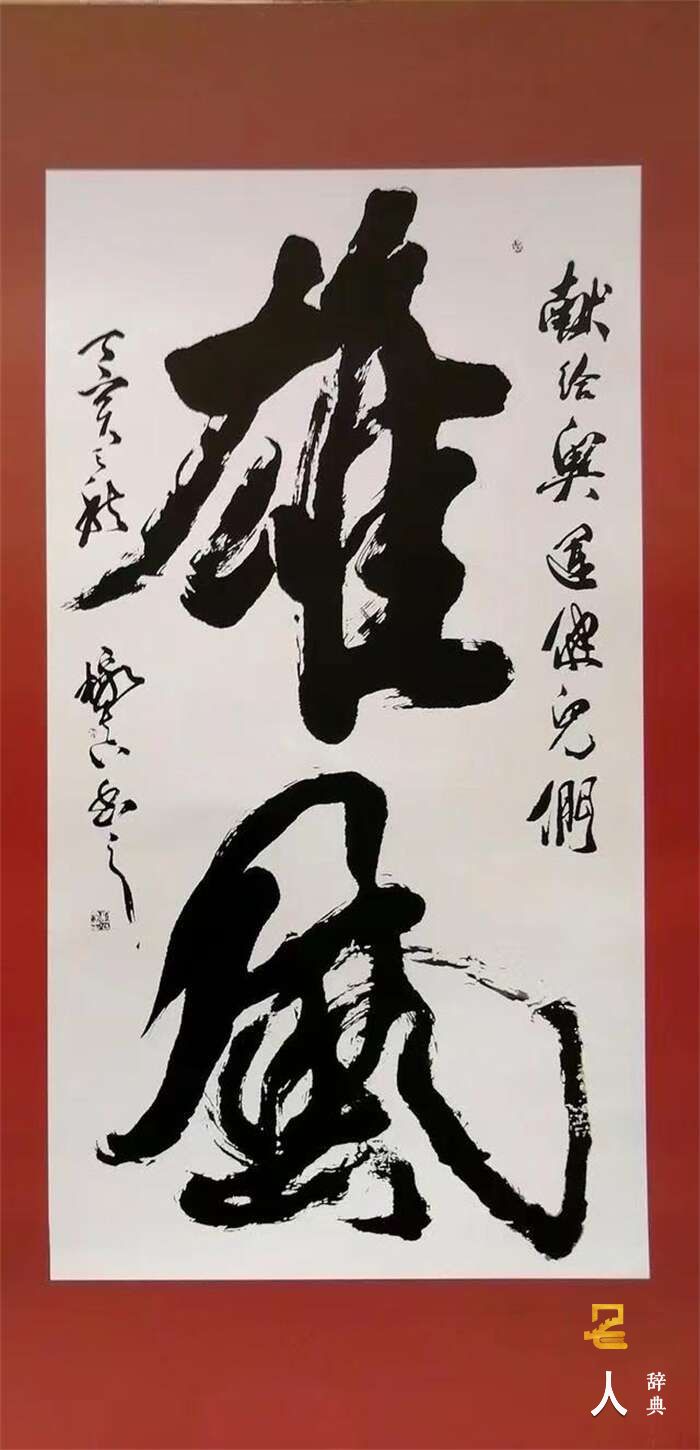 献给奥运健兒們
雄風
丁亥之秋
書之
人
辞典